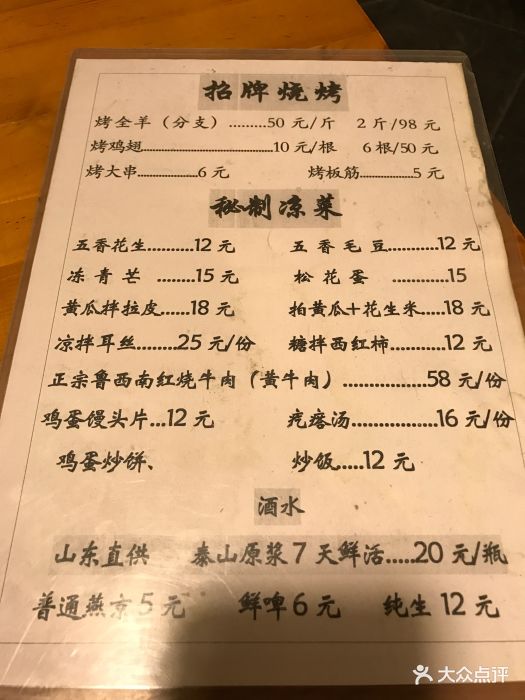 招牌烧烤
烤全羊（分支）.........50 元/斤 2 斤/98 元
烤鸡翅..............................10 元/根 6 根/50 元
烤大串....................6 元 烤板筋............5 元
秘制凉菜
五香花生..........12 元 五香毛豆...........12 元
冻青芒 ..........15 元 松花蛋 ...........15
黄瓜拌拉皮......18 元 拍黄瓜+花生米.....18 元
凉拌耳丝.........25 元/份 糖拌西红柿...........12 元
正宗鲁西南红烧牛肉（黄牛肉）.................58 元/份
鸡蛋馒头片...12 元 疙瘩汤..................16 元/份
鸡蛋炒饼、 炒饭.....12 元
酒水
山东直供 泰山原浆 7 天鲜活.....20 元/瓶
普通燕京 5 元 鲜啤 6 元 纯生 12 元
大众点评